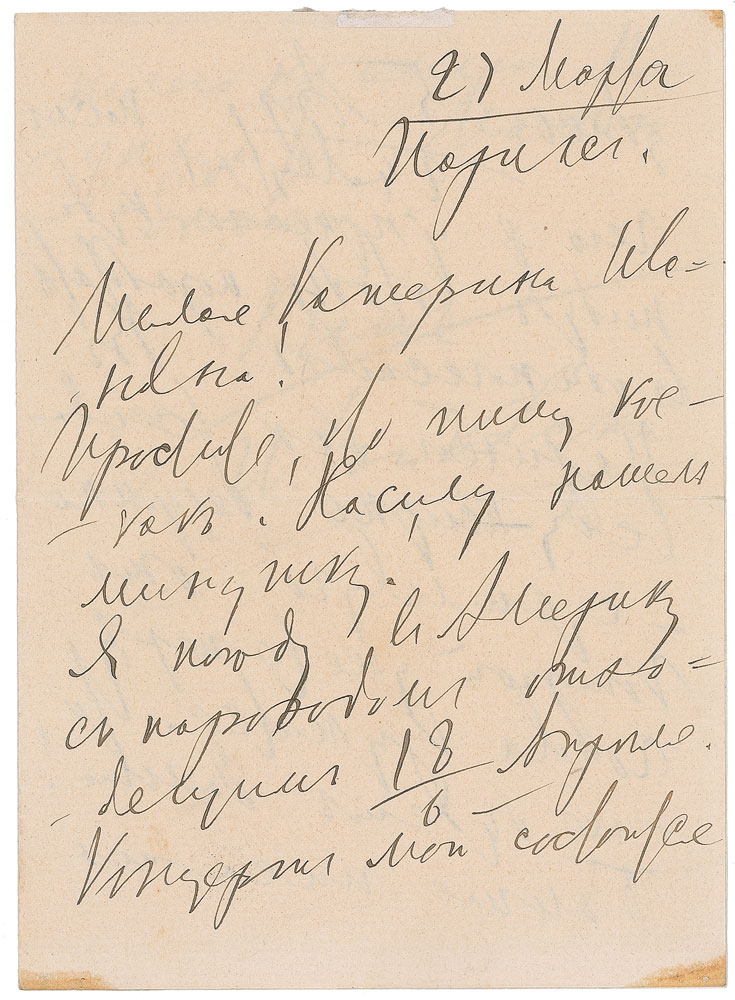 27 Марта
Париж.
Милая Катерина Ива=
нов­на!
Простите, что пишу кое-
-какъ. Насилу нашелъ
минутку.
Я поѣду въ Америку
съ пароходомъ отхо=
-дящимъ 18/6 Апреля.
Концертъ мой состоится